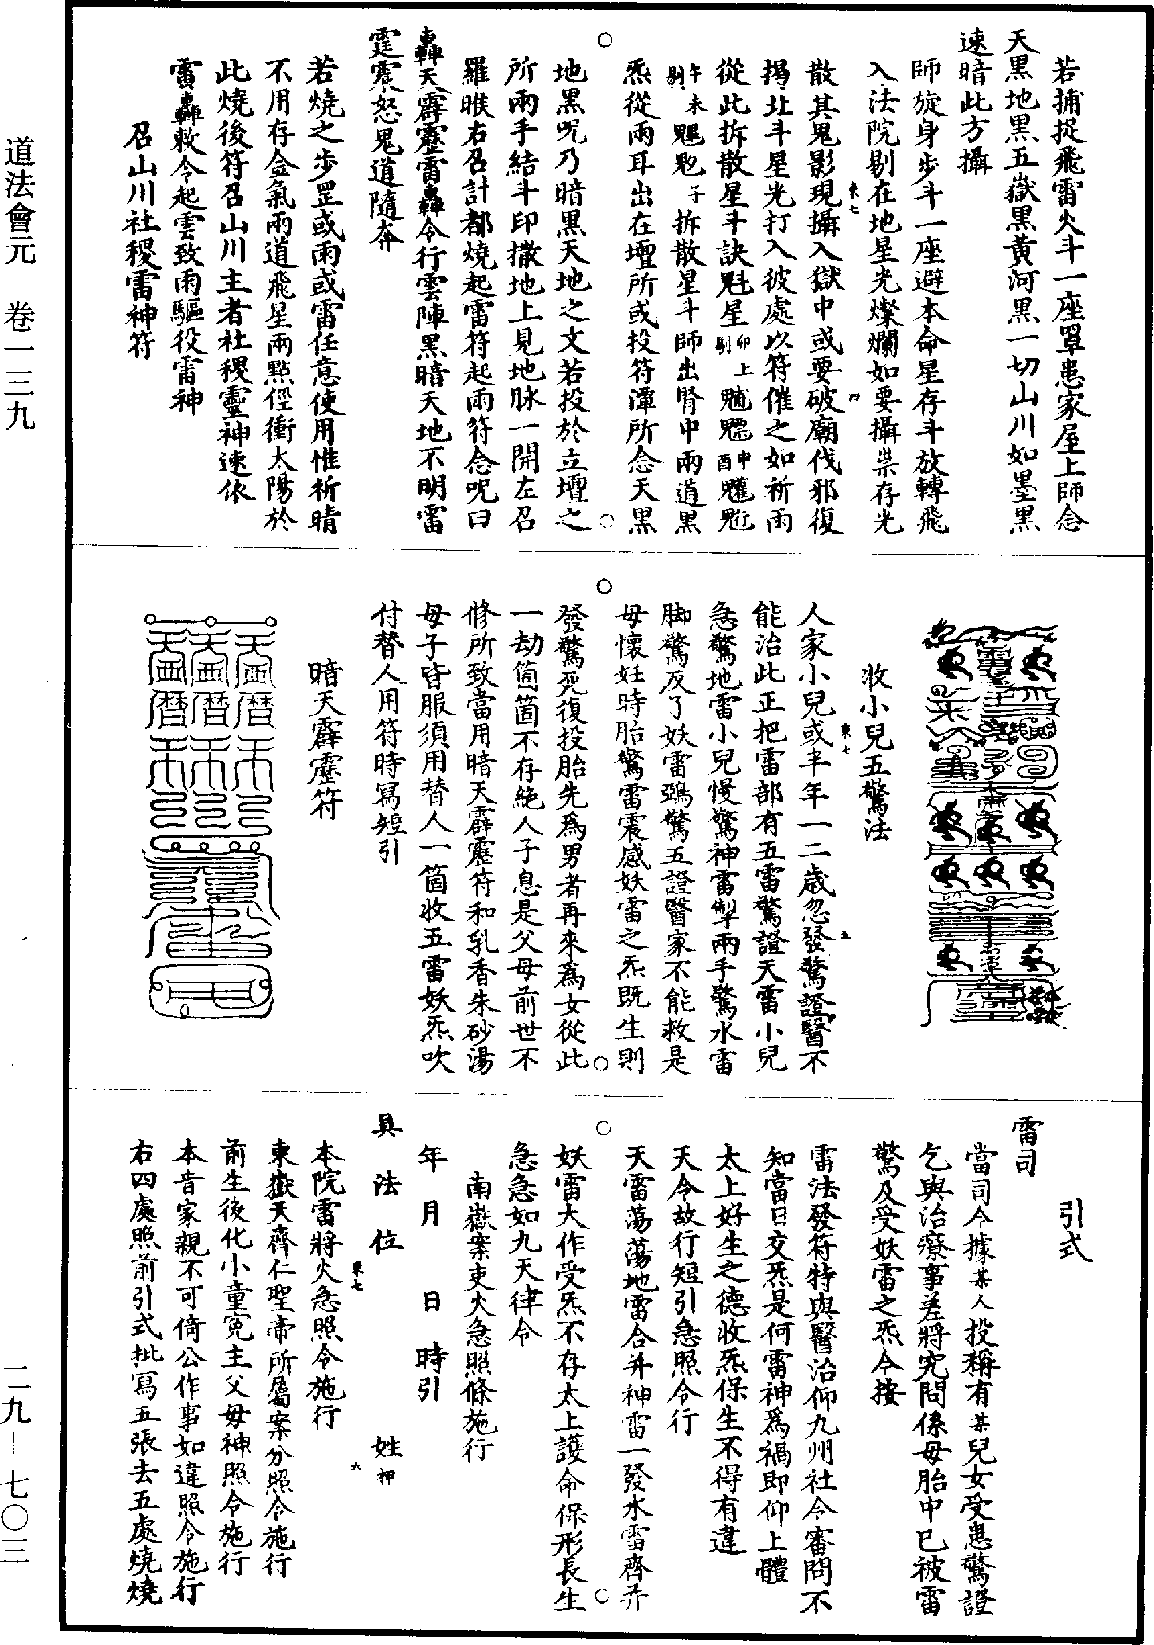 道法會元　卷一三九
二九—七〇三
若捕捉飛雷火斗一座罩患家屋上師念
天黑地黑五嶽黑黃河黑一切山川如墨黑
速暗此方攝
師旋身步斗一座避本命星存斗放轉飛
入法院剔在地星光燦爛如要攝祟存光
散其鬼影現攝入獄中或要破廟伐邪復
揭北斗星光打入彼處以符催之如祈雨
從此拆散星斗訣魁星
拆散星斗師出腎中兩道黑
炁從兩耳出在壇所或投符潭所念天黑
地黑咒乃暗黑天地之文若投於立壇之
所兩手結斗印撒地上見地脉一開左召
羅睺右召計都燒起雷符起雨符念咒曰
轟天霹靂雷轟令行雲陣黑暗天地不明雷
霆震怒鬼道隨奔
若燒之步罡或雨或雷任意使用惟祈晴
不用存金氣兩道飛星兩點徑衝太陽於
此燒後符召山川主者社稷靈神速依
雷轟敕令起雲致雨驅役雷神
召山川社稷雷神符
收小兒五驚法
人家小兒或半年一二歲忽發驚證醫不
能治此正把雷部有五雷驚證天雷小兒
急驚地雷小兒慢驚神雷掣兩手驚水雷
脚驚反了妖雷鵶驚五證醫家不能救是
母懷妊時胎驚雷震感妖雷之炁既生則
發驚死復投胎先為男者再來為女從此
一劫箇箇不存絕人子息是父母前世不
修所致當用暗天霹靂符和乳香朱砂湯
母子皆服須用替人一箇收五雷妖炁吹
付替人用符時寫短引
暗天霹靂符
引式
雷司
當司今據某人投稱有某兒女受患驚證
乞與治療事差將究問係母胎中已被雷
驚及受妖雷之炁今按
雷法發符特與醫治仰九州社令審問不
知當日交炁是何雷神為禍即仰上體
太上好生之德收炁保生不得有違
天令故行短引急照令行
天雷蕩蕩地雷合并神雷一發水雷齊升
妖雷大作受炁不存太上護命保形長生
急急如九天律令
南嶽案吏火急照條施行
年　月　日　時引
具　法　位　姓　押
本院雷將火急照令施行
東嶽天齊仁聖帝所屬案分照令施行
前生後化小童冤主父母神照令施行
本音家親不可倚公作事如違照令施行
右四處照前引式批寫五張去五處燒燒